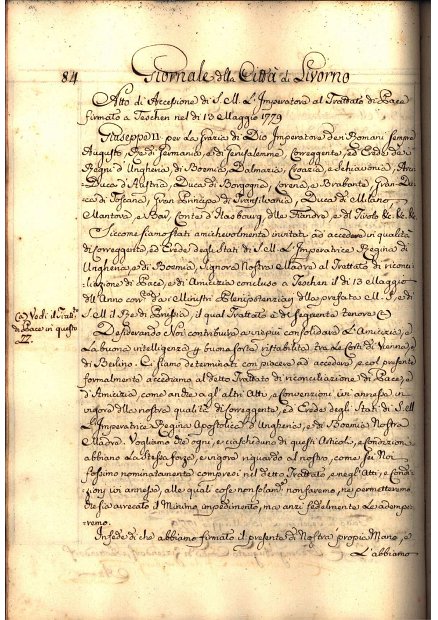 84
Giornale della Città di Livorno
Atto di Accessione di S. M. L'Imperatore al Trattato di Pace
firmato a Teschen nel dì 13 Maggio 1779
Giuseppe II per la Grazia di Dio Imperatore dei Romani sempre
Augusto, Re di Germania, e di Gerusalemme, Correggente, ed Erede dei
Regni d'Ungheria, di Boemia, Dalmazia, Croazia, e Schiavonia, Arci-
Duca d'Austria, Duca di Borgogna, Lorena, e Brabante, Gran-Du-
ca di Toscana, Gran Principe di Transilvania, Duca di Milano,
Mantova, e Bar, Conte d'Hasbourg, della Fiandra, e di Tirolo &c. &c. &c.
Siccome siamo stati amichevolmente invitati ad accedere in qualità
di Correggente, ed Erede degli Stati di S. M. L'Imperatrice Regina di
Ungheria, e di Boemia, Signora Nostra Madre al Trattato di riconci-
liazione di Pace, e di Amicizia concluso a Teschen il dì 13 Maggio
dell'Anno corr.te dai Ministri Plenipotenziarj della prefata M. S., e di
S. M. il Re di Prussia, il qual Trattato è di seguente tenore (a)
(a) Vedi il Trat.
di Pace in questo
Desiderando Noi contribuire a vie più consolidare L'Amicizia, e
La buona intelligenza per buona sorte ristabilita tra le Corti di Vienna, e
di Berlino. Ci siamo determinati con piacere ad accedere, e col presente
formalmente accediamo al detto Trattato di riconciliazione di Pace, e
d'Amicizia, come anche agl'altri Atti, e Convenzioni in annesse, in
vigore della nostra qualità di Correggente, ed Erede degli Stati di S. M.
L'Imperatrice Regina Apostolica d'Ungheria, e di Boemia Nostra
Madre. Vogliamo che ogni, e ciascheduno di questi Articoli, e condizioni
abbiano La Stessa forza, e vigore riguardo al nostro, come se Noi
fossimo nominatamente compresi nel detto Trattato, e negl'Atti, e Condi-
zioni in annesse, alle quali cose non solam.te non faremo, nè permetteremo
che sia arrecato il Minimo impedimento, ma anzi fedelmente Le adempi-
remo.
In fede di che abbiamo firmato il presente di Nostra propria Mano, e
L'abbiamo